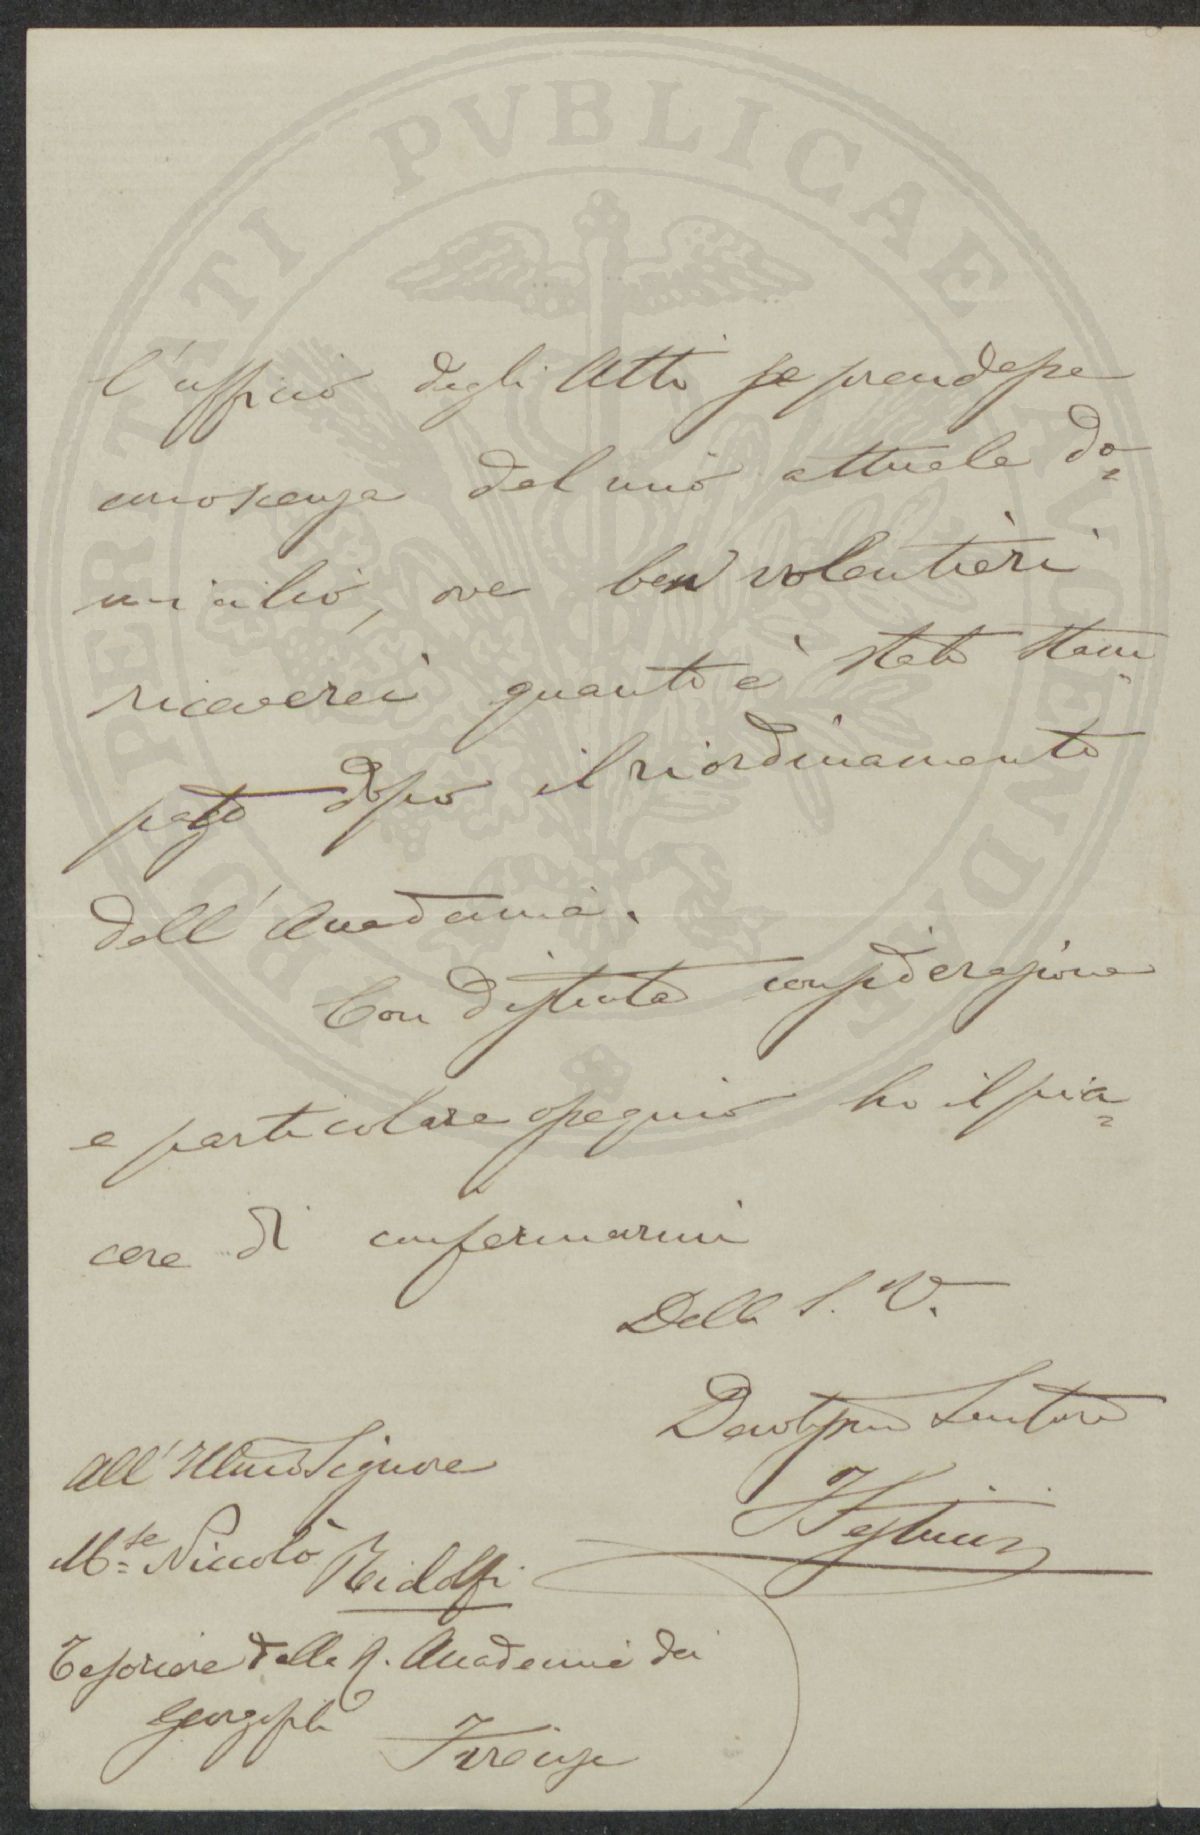 PROSPERITATI PVBLICAE AVGENDAE
l'ufficio degli Atti se prendesse
conoscenza del mio attuale do=
micilio, ove ben volentieri
riceverei quanto è stato stam=
pato dopo il riordinamento
dell'Accademia.
Con distinta considerazione
e particolare ossequio ho il pia=
cere di confermarmi
Della S. V.
Devotissmo Servitore
All'Illmo Signore
M.se Niccolò Ridolfi
Tesoriere della R. Accademia dei
Georgofili
Firenze